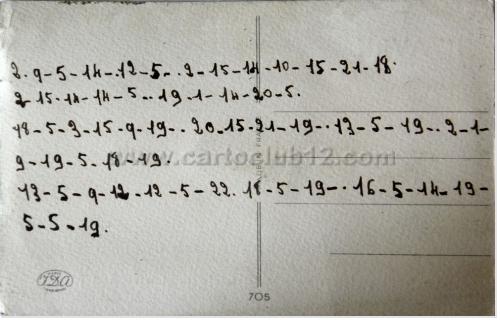 2.9-5-14-.12-5-.2-15-14-10-15-21-18.
2-15-14-14-5-.19-1-14-20-5.
18-5-3-15-9-19-.20-15-21-19-.13-5-19-.2-1-
9-19-5-18-19.
www.cartoclub12.com
13-5-9-12-12-5-22.18-5-19-.16-5-14-19-
5-5-19.
705